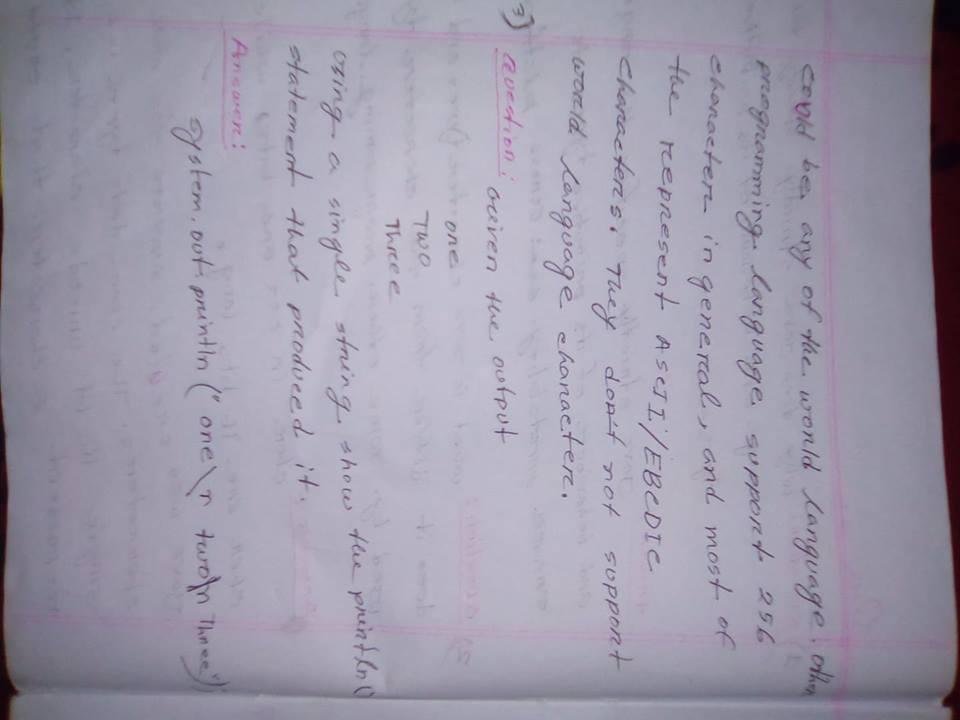 could be any of the world language. Other
programming language support 256
character in general, and most of
the represent ASCII/EBCDIC
characters. They don't not support
world language character.
3) Question: Given the output
one
TWO
Three
Using a single string show the println()
statement that produced it.
Answer:
System.out.println (" one\n two\n Three");